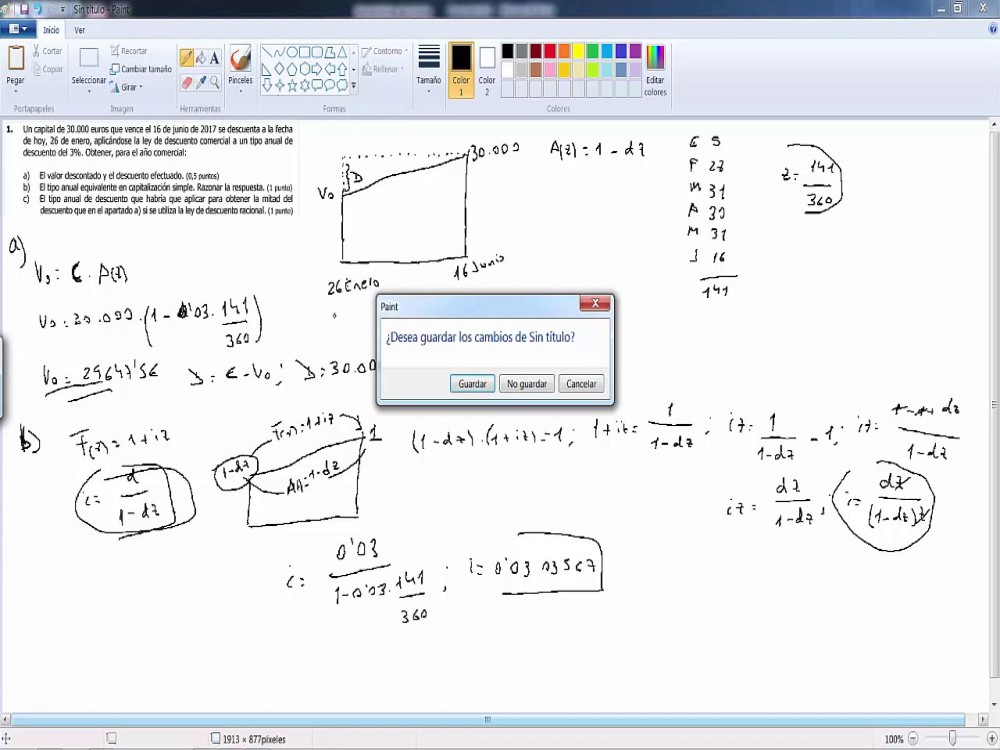 Sin título - Paint
Inicio Ver
Pegar
Cortar
Copiar
Portapapeles
Seleccionar
Recortar
Cambiar tamaño
Girar
Imagen
Herramientas
Pinceles
Contorno
Rellenar
Formas
Tamaño
Color 1
Color 2
Editar colores
Colores
1. Un capital de 30.000 euros que vence el 16 de junio de 2017 se descuenta a la fecha
de hoy, 26 de enero, aplicándose la ley de descuento comercial a un tipo anual de
descuento del 3%. Obtener, para el año comercial:
a) El valor descontado y el descuento efectuado. (0,5 puntos)
b) El tipo anual equivalente en capitalización simple. Razonar la respuesta. (1 punto)
c) El tipo anual de descuento que habría que aplicar para obtener la mitad del
descuento que en el apartado a) si se utiliza la ley de descuento racional. (1 punto)
30.000
A(z) = 1 - dz
D
V₀
26 Enero
16 Junio
E 5
F 28
M 31
A 30
M 31
J 16
141
z = 141/360
a)
V₀ = C · A(z)
V₀ = 30.000 · (1 - 0'03 · 141/360)
V₀ = 29647'5€ D = C - V₀; D = 30.00
Paint
X
¿Desea guardar los cambios de Sin título?
Guardar No guardar Cancelar
b) F(z) = 1 + iz
i = d/(1 - dz)
F(z) = 1 + iz
1
1 - dz
A(z) = 1 - dz
(1 - dz) · (1 + iz) = 1; 1 + iz = 1/(1 - dz); iz = 1/(1 - dz) - 1; iz = (1 - 1 + dz)/(1 - dz)
iz = dz/(1 - dz); i = dz/((1 - dz)z)
i = 0'03/(1 - 0'03 · 141/360); i = 0'0303567
1913 × 877píxeles
100%